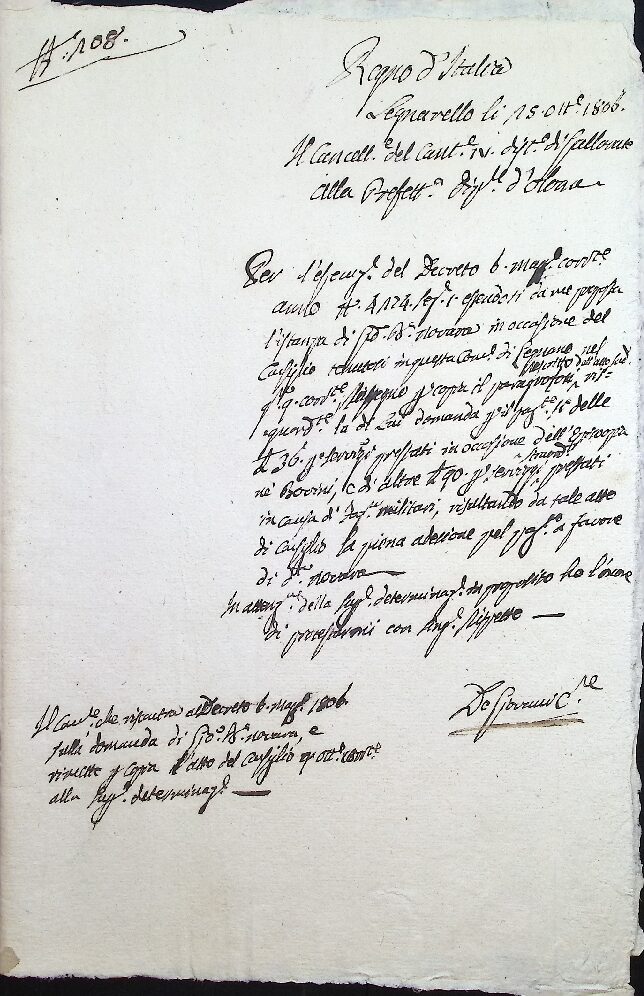 N.° 108.
Regno d'Italia
Legnarello li 15. Ott.e 1806.
Il Cancell.e del Cant.e IV. dist.o di Gallarate
alla Prefett.a dip.l d'Olona
Per l'esecuz.e del Decreto 6. mag.o corr.te
anno N. 4174. Sez. 1. essendosi da me proposta
l'istanza di Gio. B.a Novara in occasione del
Consiglio tenutosi in questa Com.e di Legnano nel
g.no 9. corr.te, rassegno p. copia il paragrafo inserito all'atto sud.o ris-
guard.te la di Lui domanda p. il pag.to delle
36. p. servizj prestati in occasione dell'Epizoozia
ne' Bovini, e di altre 90. p. servizj straord. prestati
in causa di Pass.i militari, risultando da tale atto
di Consiglio la piena adesione pel pag.to a favore
di d.o Novara
In attenz.ne della Sup.e determinaz.e in proposito ho l'onore
di protestarmi con disp.to Rispetto
De Giovanni C.re
Il Canc.e che riscontra al Decreto 6. mag.o 1806.
sulla domanda di Gio. B.a Novara, e
rimette p. copia l'atto del Consiglio 9. Ott.e corr.te
alla Sup.e determinaz.e